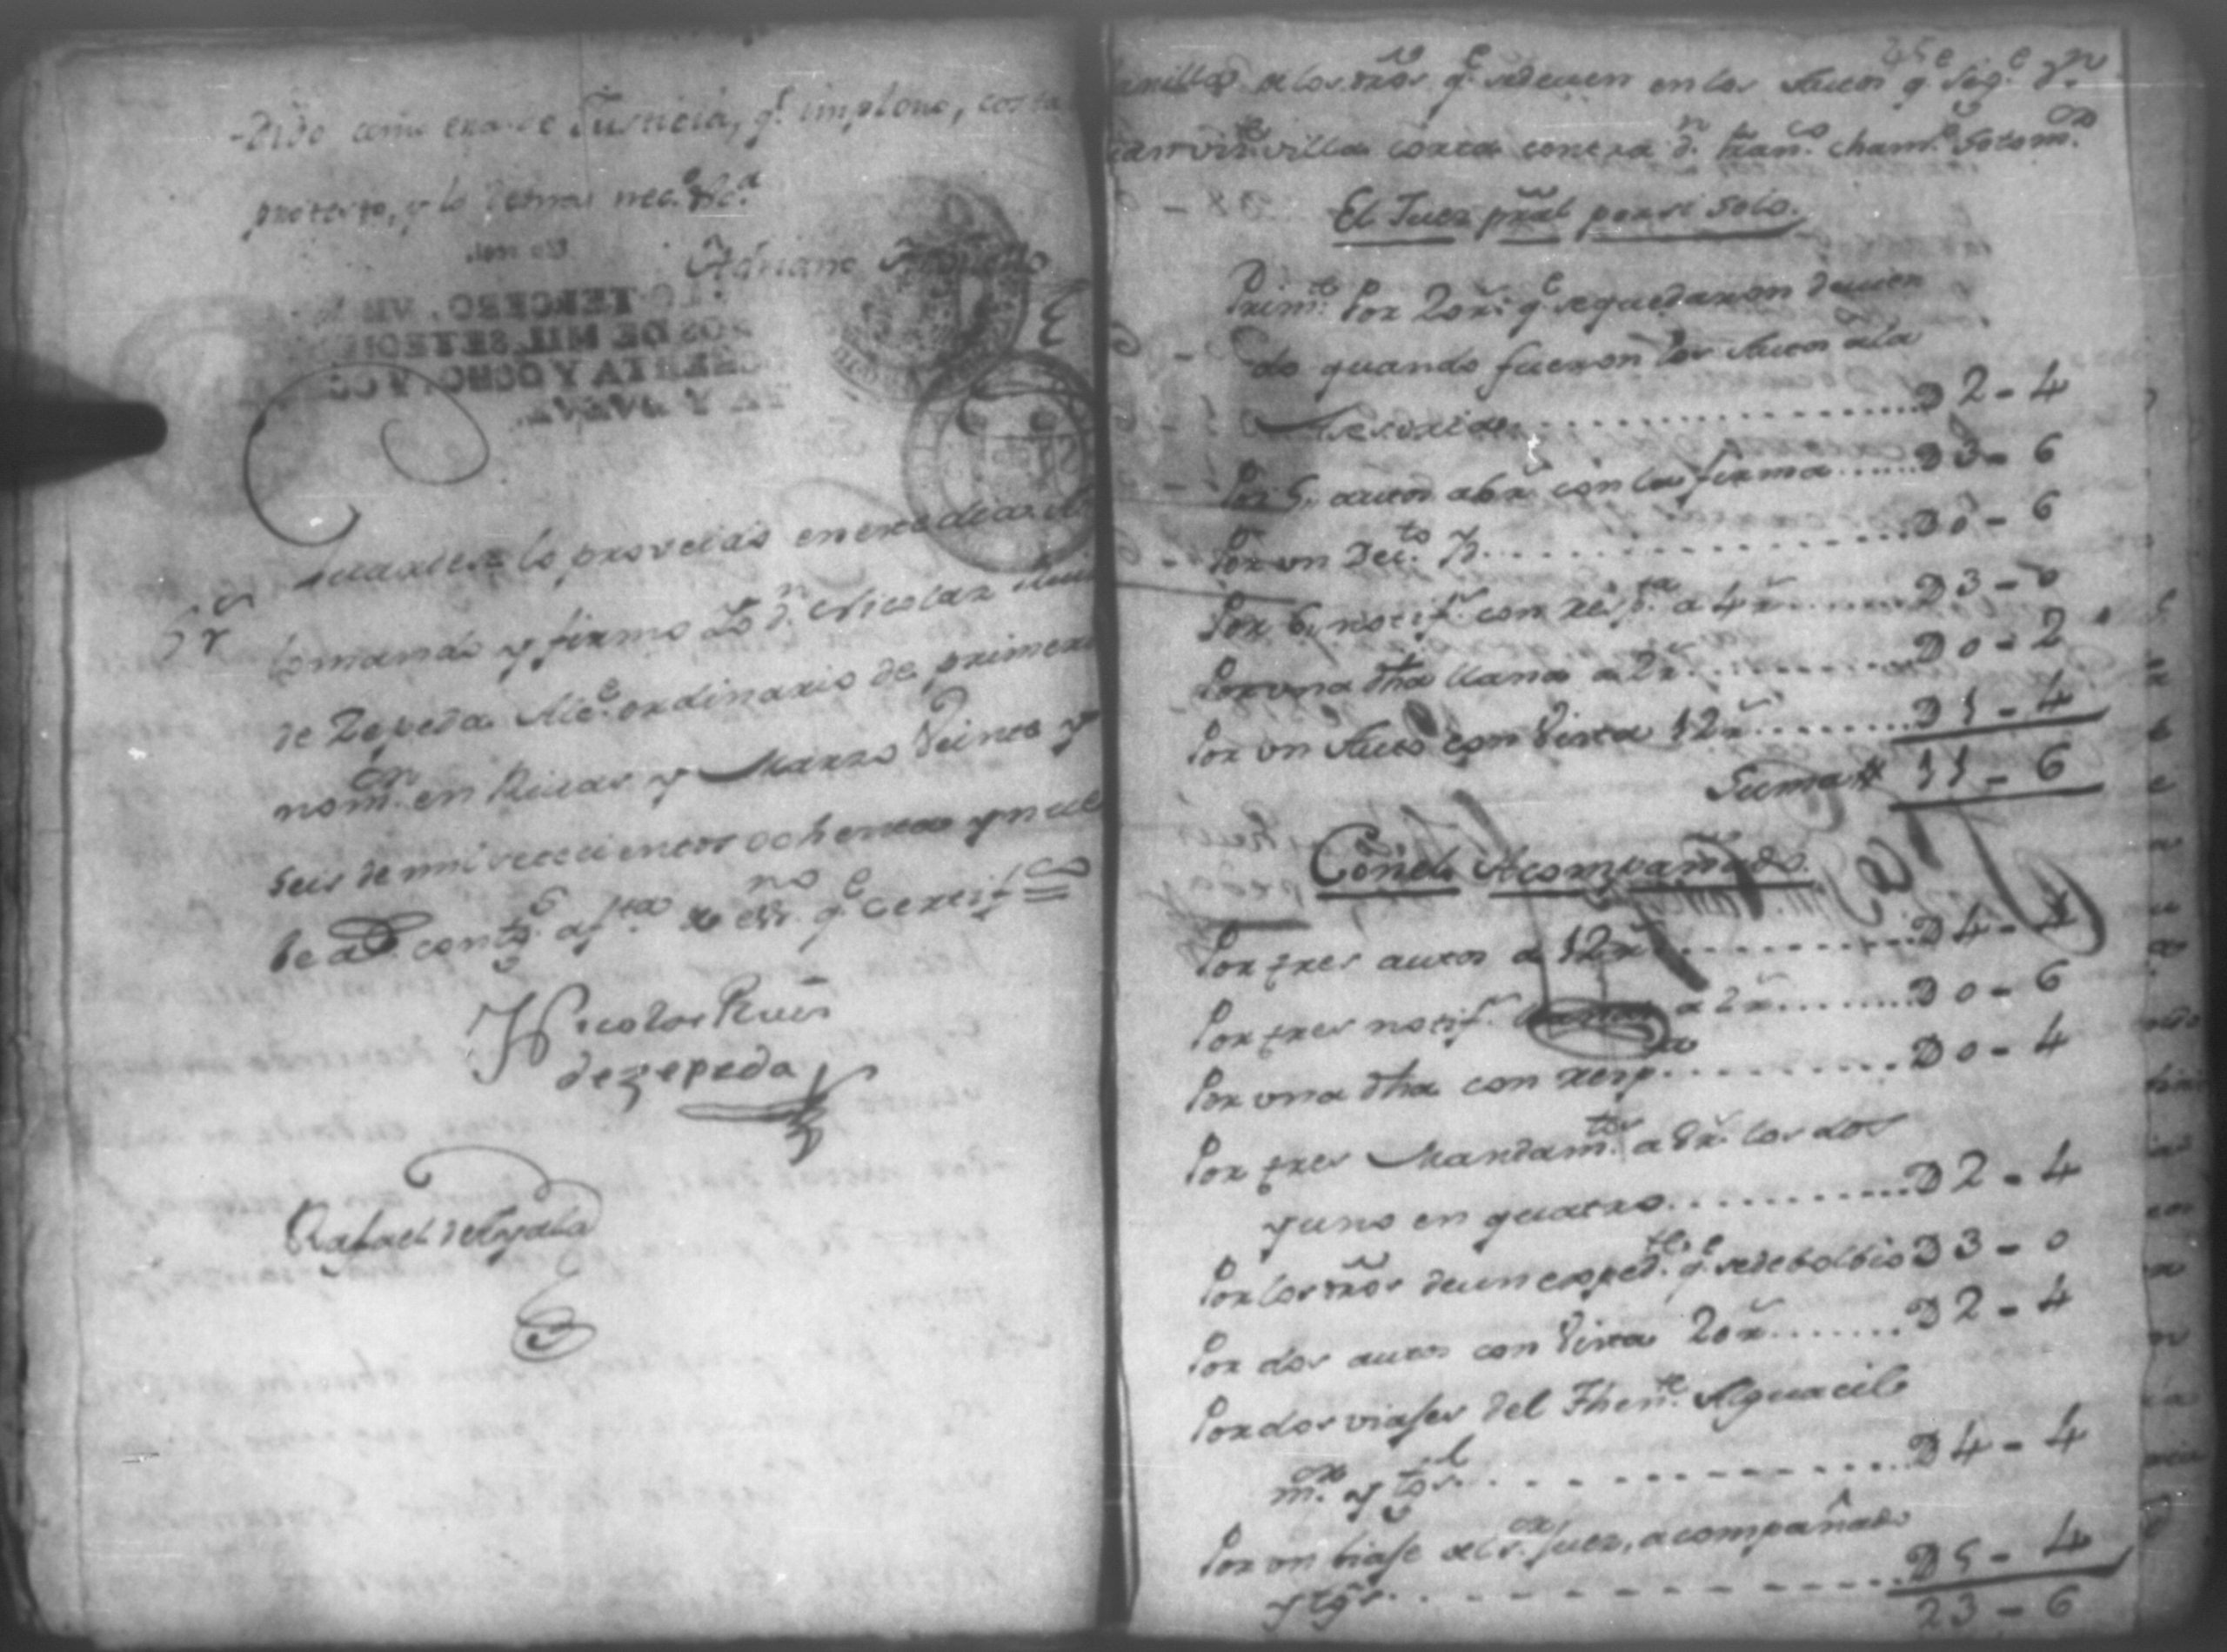 -dido como era de Justicia, q.e imploro, costa
protesto, y lo demas nec.o &c.a
Adriano
Guardese lo proveido en este dia
lo mando y firmo Yo d.n Nicolas
de Zepeda Alc.e ordinario de primero
nom.on en Rivas y Marzo Veinte y
seis de mil setecientos ochenta y nuebe
de q.e certif.co =
Nicolas Ruis
de zepeda
Rafael de Ayala
de los dros q.e se deven en los Autos q.e sig.e
villa corta contra d.n Fran.co Cham.o Sotom.or
El Juez pral por si solo.
Prim.te Por 20 r.s q.e se quedaron devien
do quando fueron los Autos a la
Asesoria D 2 - 4
Por 5, autos a 6 r.s con la firma D 3 - 6
Por un Dec.to D 0 - 6
Por 6, notif.s con resp.ta a 4 r.s D 3 - 0
Por una dha llana a 2 r.s D 0 - 2
Por un Auto con Vista 12 r.s D 1 - 4
Suma # 11 - 6
Con el Acompañado.
Por tres autos a 12 r.s D 4 - 4
Por tres notif.s a 2 r.s D 0 - 6
Por una dha con resp.ta D 0 - 4
Por tres Mandam.tos a 8 r.s los dos
y uno en quatro D 2 - 4
Por los dros de un exped.te q.e se debolbio D 3 - 0
Por dos autos con Vista 20 r.s D 2 - 4
Por dos viajes del Then.te Alguacil
m.or y tg.s D 4 - 4
Por un biaje del s.or Juez, acompañado
y tg.s D 5 - 4
23 - 6